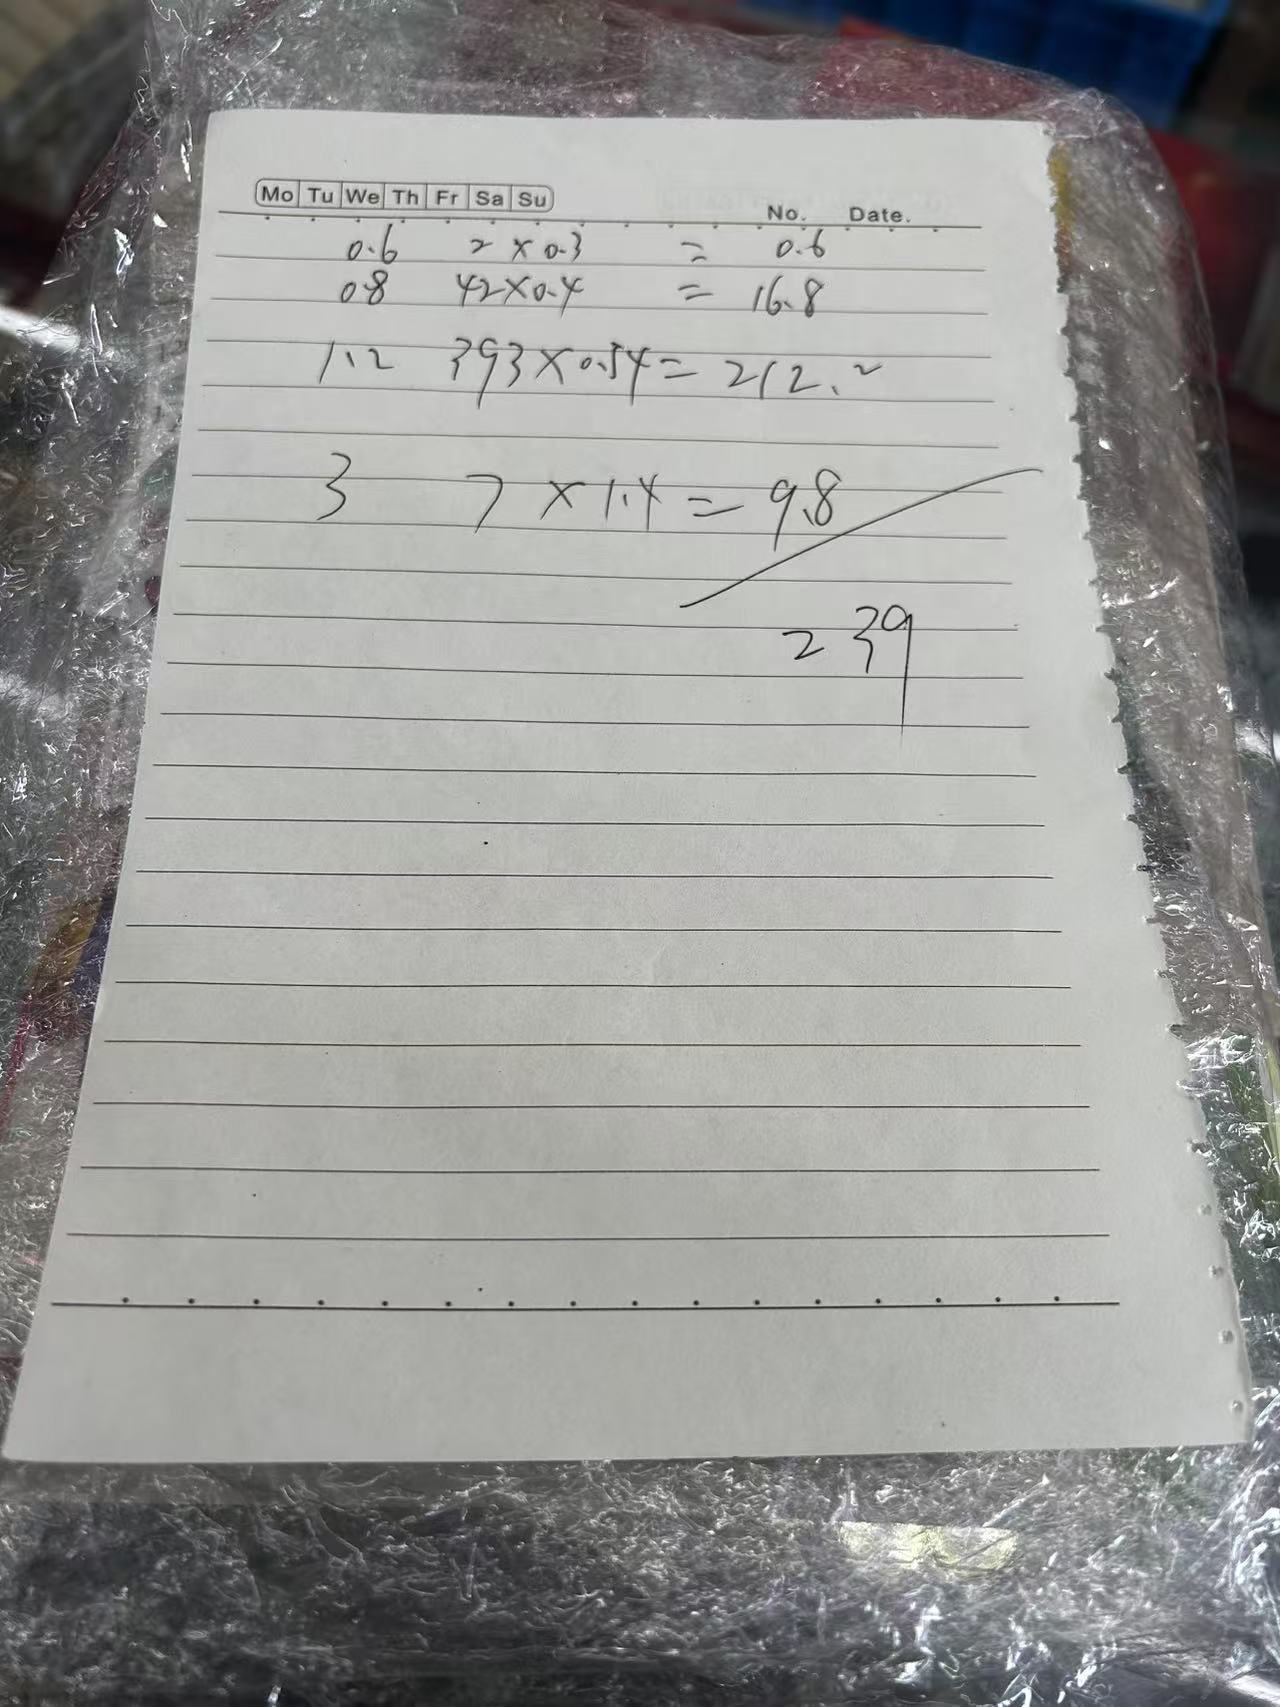 Mo Tu We Th Fr Sa Su
No. Date.
0.6 2 × 0.3 = 0.6
0.8 42×0.4 = 16.8
1.2 393×0.54= 212.2
3 7 × 1.4 = 9.8
239